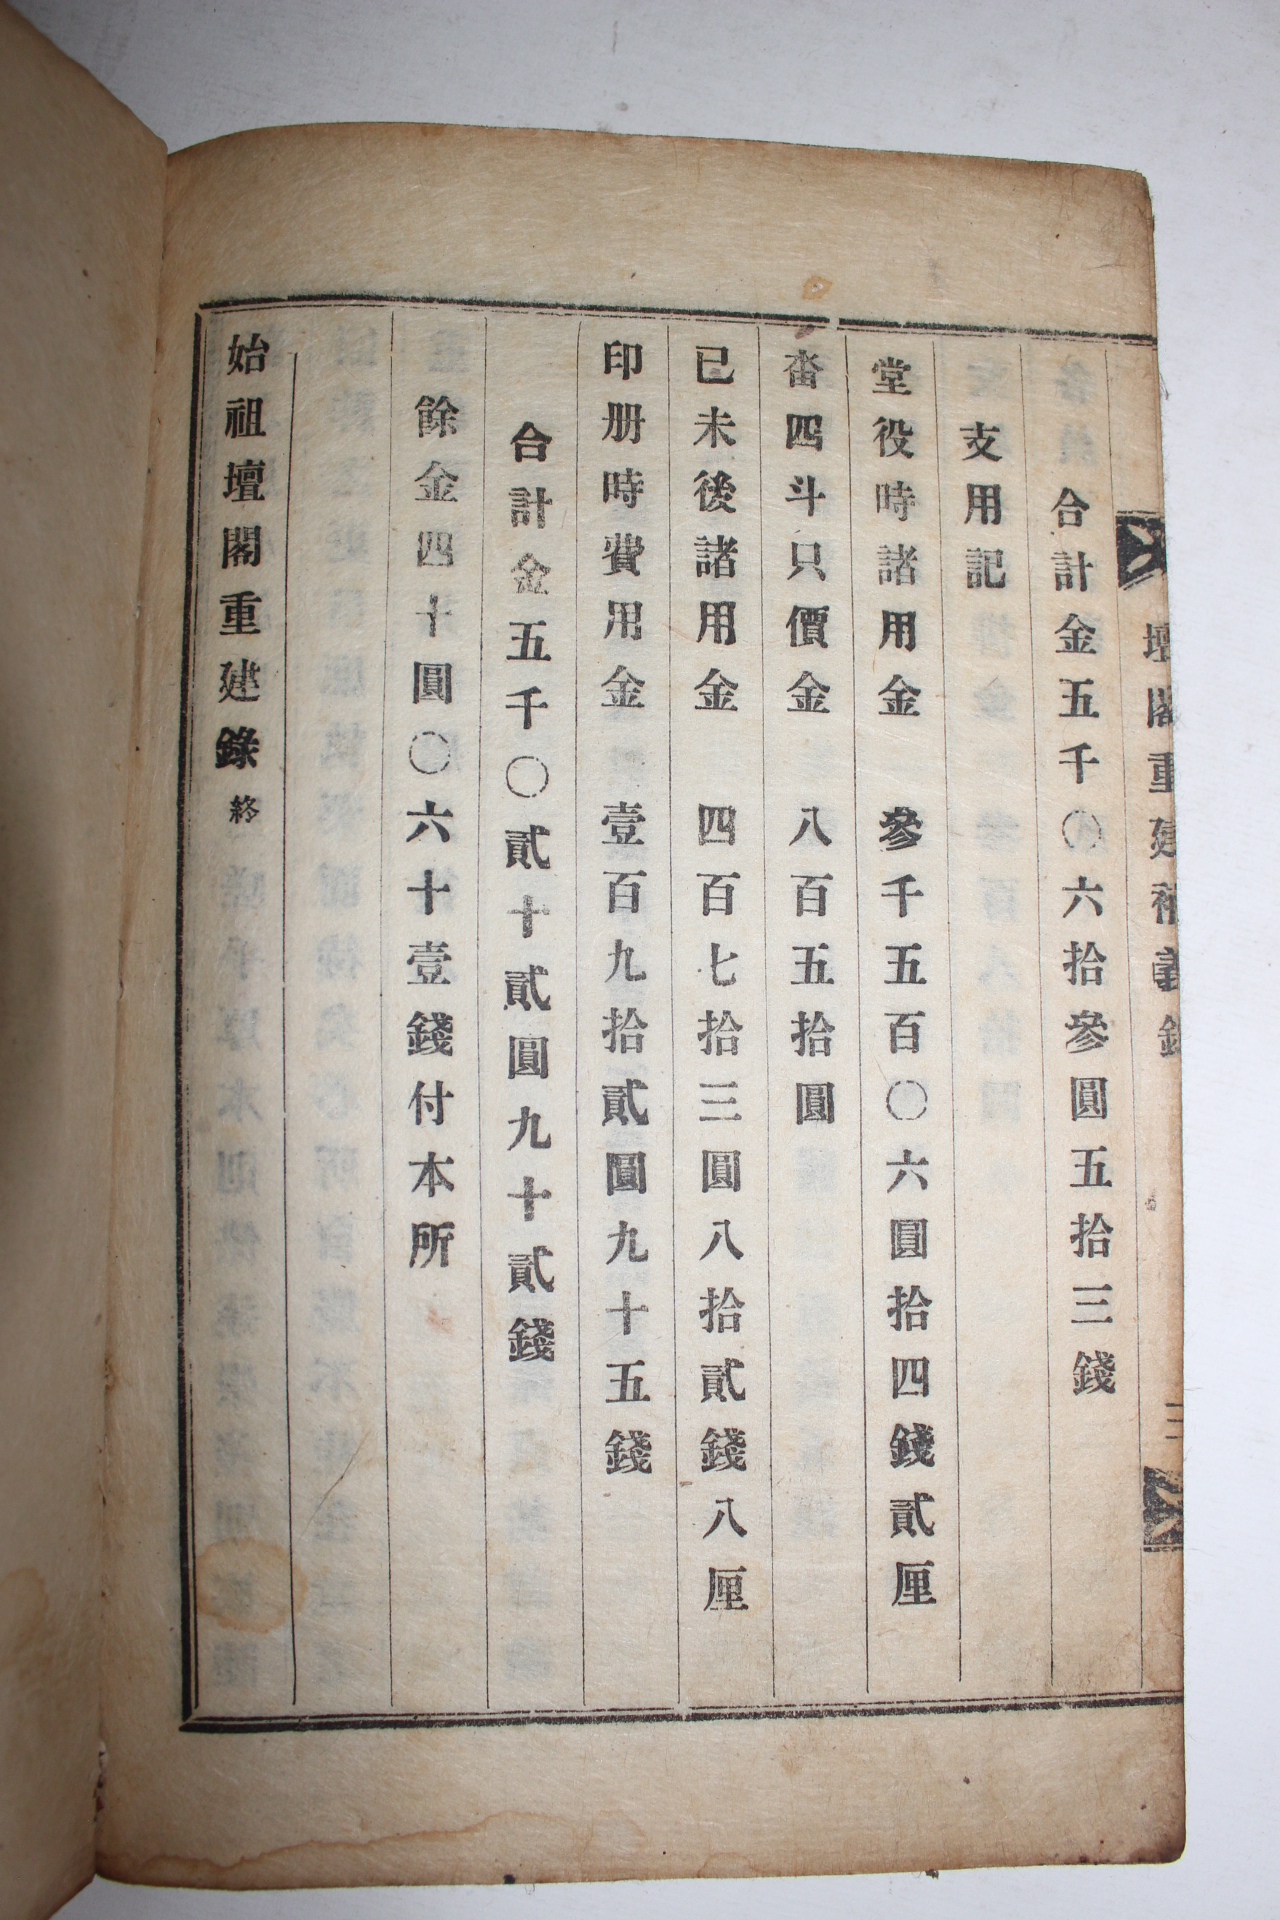 壇閣重建補義錄
三
合計金五千〇六拾參圓五拾三錢
支用記
堂役時諸用金 參千五百〇六圓拾四錢貳厘
畓四斗只價金 八百五拾圓
已未後諸用金 四百七拾三圓八拾貳錢八厘
印册時費用金 壹百九拾貳圓九十五錢
合計金五千〇貳十貳圓九十貳錢
餘金四十圓〇六十壹錢付本所
始祖壇閣重建錄終